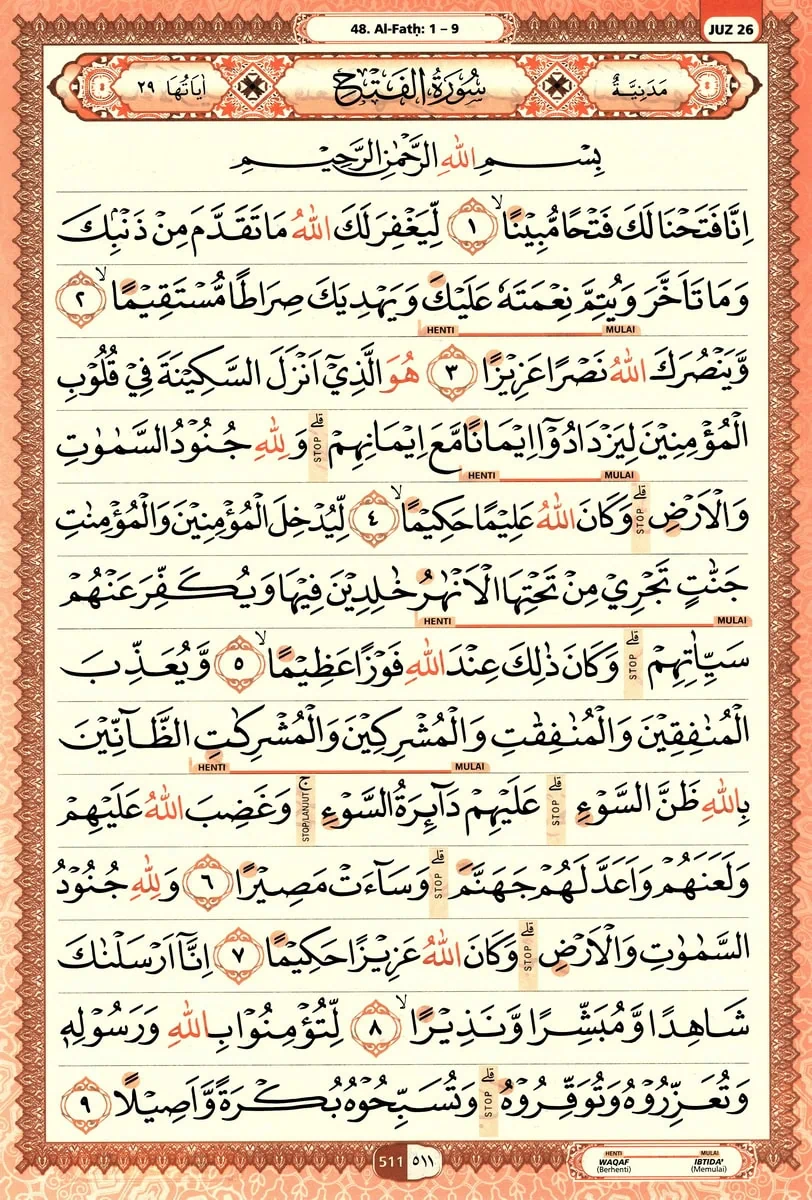 48. Al-Fatḥ: 1 – 9
JUZ 26
سُوْرَةُ الْفَتْحِ
مَدَنِيَّةٌ
اٰيَاتُهَا ٢٩
بِسْمِ اللّٰهِ الرَّحْمٰنِ الرَّحِيْمِ
اِنَّا فَتَحْنَا لَكَ فَتْحًا مُّبِيْنًاۙ ١ لِّيَغْفِرَ لَكَ اللّٰهُ مَا تَقَدَّمَ مِنْ ذَنْۢبِكَ
وَمَا تَاَخَّرَ وَيُتِمَّ نِعْمَتَهٗ عَلَيْكَ وَيَهْدِيَكَ صِرَاطًا مُّسْتَقِيْمًاۙ ٢
HENTI MULAI
وَّيَنْصُرَكَ اللّٰهُ نَصْرًا عَزِيْزًا ٣ هُوَ الَّذِيْٓ اَنْزَلَ السَّكِيْنَةَ فِيْ قُلُوْبِ
الْمُؤْمِنِيْنَ لِيَزْدَادُوْٓا اِيْمَانًا مَّعَ اِيْمَانِهِمْ ۗ STOP وَلِلّٰهِ جُنُوْدُ السَّمٰوٰتِ
HENTI MULAI
وَالْاَرْضِ ۗ STOP وَكَانَ اللّٰهُ عَلِيْمًا حَكِيْمًاۙ ٤ لِّيُدْخِلَ الْمُؤْمِنِيْنَ وَالْمُؤْمِنٰتِ
جَنّٰتٍ تَجْرِيْ مِنْ تَحْتِهَا الْاَنْهٰرُ خٰلِدِيْنَ فِيْهَا وَيُكَفِّرَ عَنْهُمْ
HENTI MULAI
سَيِّاٰتِهِمْ ۗ STOP وَكَانَ ذٰلِكَ عِنْدَ اللّٰهِ فَوْزًا عَظِيْمًاۙ ٥ وَّيُعَذِّبَ
الْمُنٰفِقِيْنَ وَالْمُنٰفِقٰتِ وَالْمُشْرِكِيْنَ وَالْمُشْرِكٰتِ الظَّاۤنِّيْنَ
HENTI MULAI
بِاللّٰهِ ظَنَّ السَّوْءِ ۗ STOP عَلَيْهِمْ دَاۤىِٕرَةُ السَّوْءِ ۚ STOP/LANJUT وَغَضِبَ اللّٰهُ عَلَيْهِمْ
وَلَعَنَهُمْ وَاَعَدَّ لَهُمْ جَهَنَّمَ ۗ STOP وَسَاۤءَتْ مَصِيْرًا ٦ وَلِلّٰهِ جُنُوْدُ
السَّمٰوٰتِ وَالْاَرْضِ ۗ STOP وَكَانَ اللّٰهُ عَزِيْزًا حَكِيْمًا ٧ اِنَّآ اَرْسَلْنٰكَ
شَاهِدًا وَّمُبَشِّرًا وَّنَذِيْرًاۙ ٨ لِّتُؤْمِنُوْا بِاللّٰهِ وَرَسُوْلِهٖ
وَتُعَزِّرُوْهُ وَتُوَقِّرُوْهُ ۗ STOP وَتُسَبِّحُوْهُ بُكْرَةً وَّاَصِيْلًا ٩
511 ٥١١
HENTI MULAI
WAQAF IBTIDA'
(Berhenti) (Memulai)